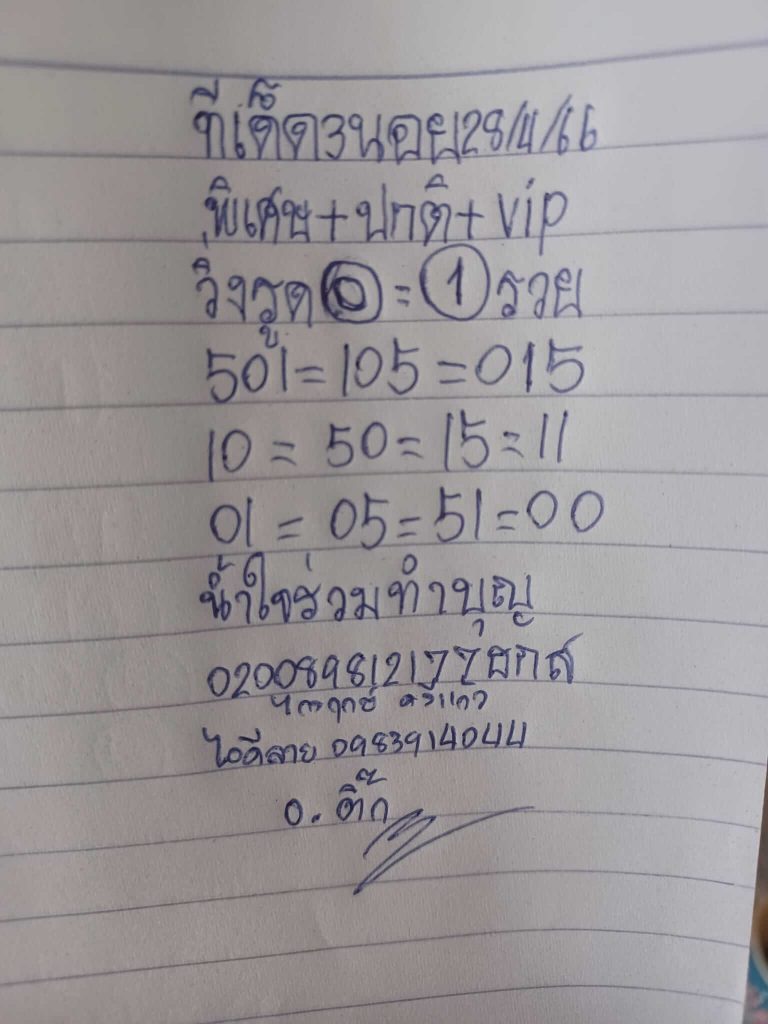 ทีเด็ด3นอย28/4/66
พิเศษ+ปกติ+vip
วิ่งรูด 0 = 1 รวย
501=105=015
10 = 50=15=11
01 = 05=51=00
น้ำใจร่วมทำบุญ
020089812177ธกส
ไอดีลาย 0983914044
อ. ติ๊ก